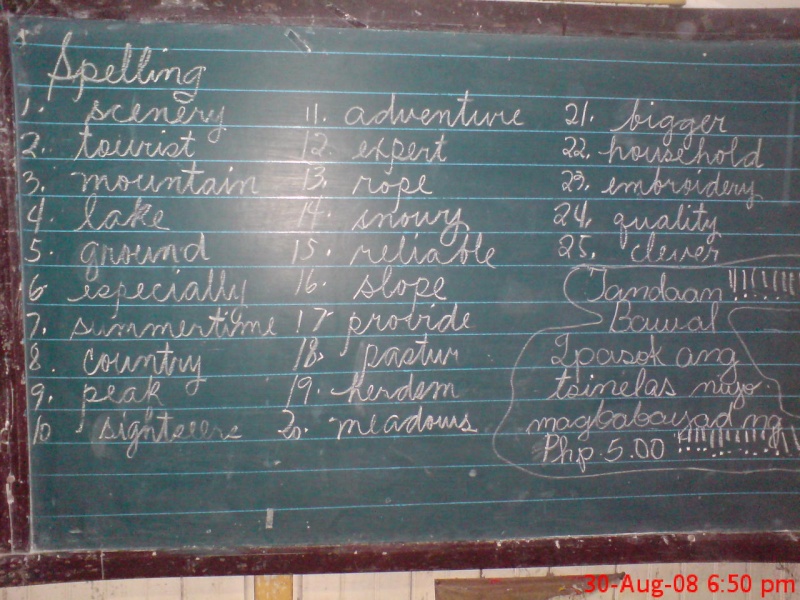 Spelling
1. scenery
2. tourist
3. mountain
4. lake
5. ground
6 especially
7. summertime
8. country
9. peak
10 sightseers
11. adventure
12. expert
13. rope
14. snowy
15. reliable
16. slope
17 provide
18. pastur
19. herdsm
20. meadows
21. bigger
22. household
23. embroidery
24. quality
25. clever
Tandaan !!!!!!!
Bawal
Ipasok ang
tsinelas nuyo.
magbabayad ng
Php 5.00 !!!!!!!!!!!
30-Aug-08 6:50 pm